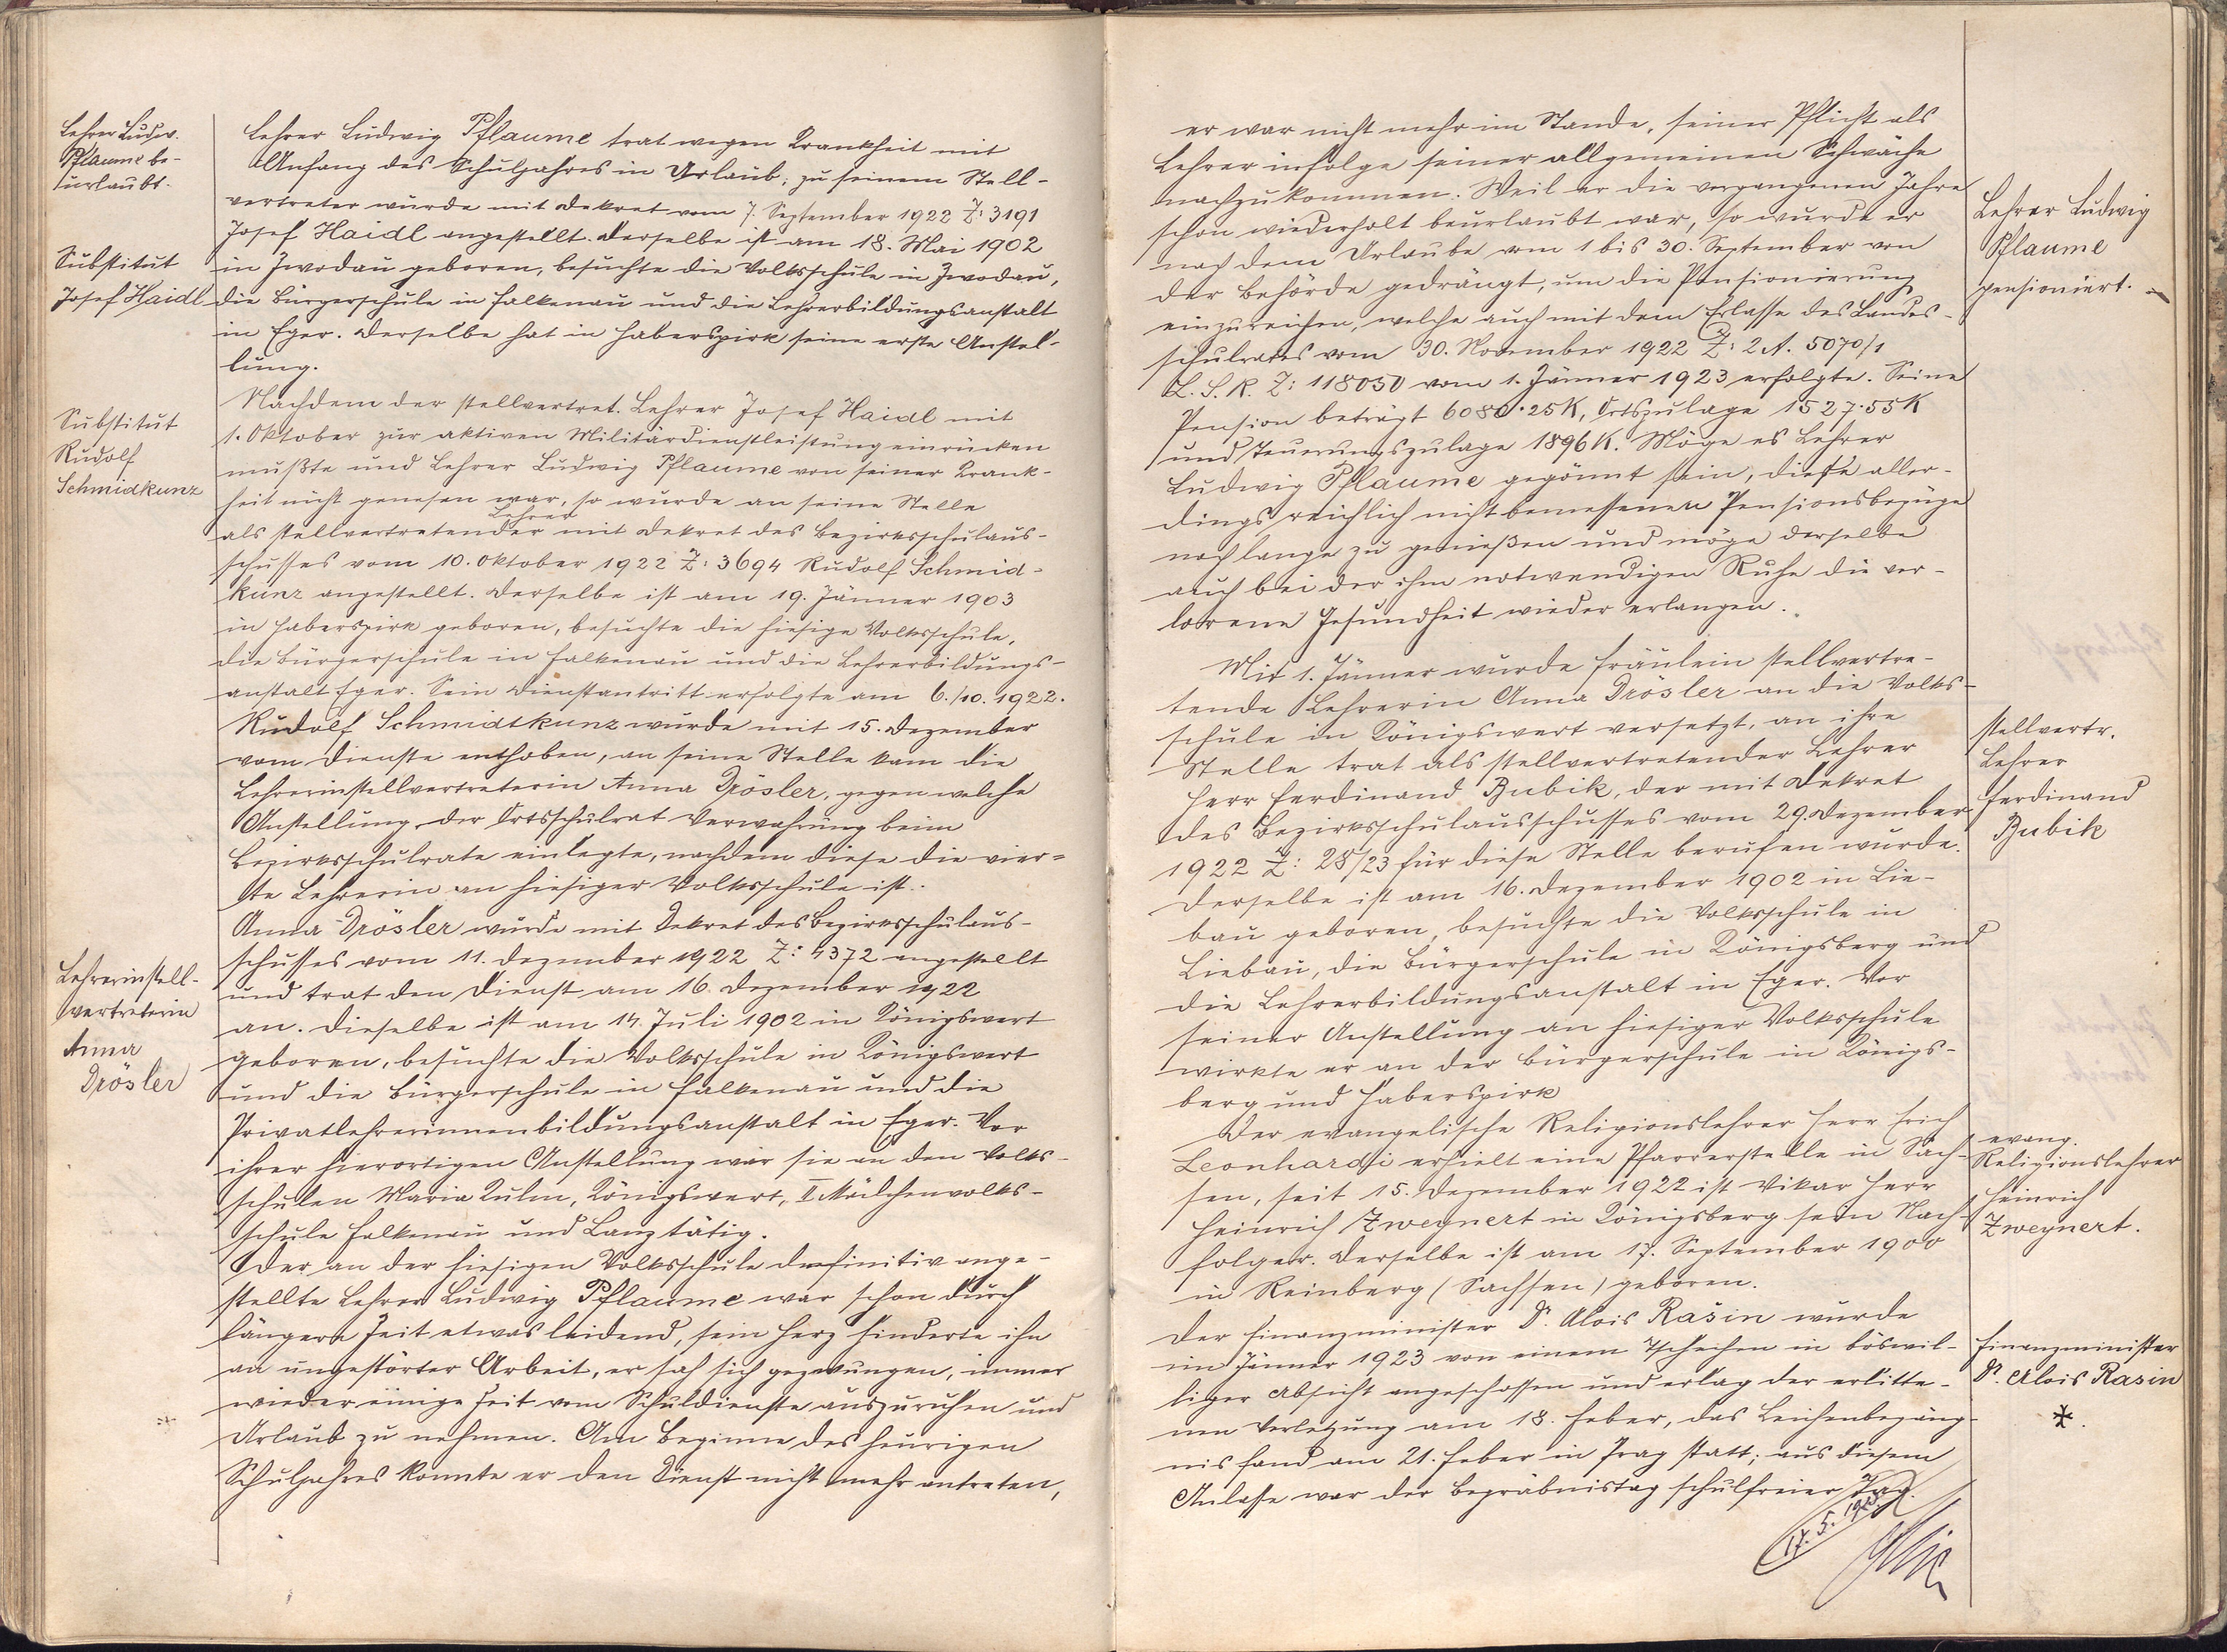 Lehrer Ludw.
Pflaume be-
urlaubt.
Lehrer Ludwig Pflaume trat wegen Krankheit mit
Anfang des Schuljahres in Urlaub; zu seinem Stell-
vertreter wurde mit Dekret vom 7. September 1922 Z: 3191
Josef Haidl angestellt. Derselbe ist am 18. Mai 1902
in Zwodau geboren, besuchte die Volksschule in Zwodau,
die Bürgerschule in Falkenau und die Lehrerbildungsanstalt
in Eger. Derselbe hat in Haberspirk seine erste Anstel-
lung.
Substitut
Josef Haidl
Nachdem der stellvertret. Lehrer Josef Haidl mit
1. Oktober zur aktiven Militärdienstleistung einrücken
mußte und Lehrer Ludwig Pflaume von seiner Krank-
heit nicht genesen war, so wurde an seine Stelle
als stellvertretender Lehrer mit Dekret des Bezirksschulaus-
schusses vom 10. Oktober 1922 Z: 3694 Rudolf Schmid-
kunz angestellt. Derselbe ist am 19. Jänner 1903
in Haberspirk geboren, besuchte die hiesige Volksschule,
die Bürgerschule in Falkenau und die Lehrerbildungs-
anstalt Eger. Sein Dienstantritt erfolgte am 6./10. 1922.
Substitut
Rudolf
Schmidkunz
Rudolf Schmidtkunz wurde mit 15. Dezember
vom Dienste enthoben, an seine Stelle kam die
Lehrerinstellvertreterin Anna Drösler, gegen welche
Anstellung der Ortsschulrat Verwahrung beim
Bezirksschulrate einlegte, nachdem diese die vier-
te Lehrerin an hiesiger Volksschule ist.
Anna Drösler wurde mit Dekret des Bezirksschulaus-
schusses vom 11. Dezember 1922 Z: 4372 angestellt
und trat den Dienst am 16. Dezember 1922
an. Dieselbe ist am 14. Juli 1902 in Königswert
geboren, besuchte die Volksschule in Königswert
und die Bürgerschule in Falkenau und die
Privatlehrerinnenbildungsanstalt in Eger. Vor
ihrer hierortigen Anstellung war sie an den Volks-
schulen Maria Kulm, Königswert, II Mädchenvolks-
schule Falkenau und Lanz tätig.
Lehrerinstell-
vertreterin
Anna
Drösler
Der an der hiesigen Volksschule definitiv ange-
stellte Lehrer Ludwig Pflaume war schon durch
längere Zeit etwas leidend, sein Herz hinderte ihn
an ungestörter Arbeit, er sah sich gezwungen, immer
wieder einige Zeit vom Schuldienste auszuruhen und
Urlaub zu nehmen. Am Beginne des heurigen
Schuljahres konnte er den Dienst nicht mehr antreten,
er war nicht mehr im Stande, seiner Pflicht als
Lehrer infolge seiner allgemeinen Schwäche
nachzukommen. Weil er die vergangenen Jahre
schon wiederholt beurlaubt war, so wurde er
nach dem Urlaube vom 1 bis 30. September von
der Behörde gedrängt, um die Pensionierung
einzureichen, welche auch mit dem Erlasse des Landes-
schulrates vom 30. November 1922 Z: 2 A. 5070/1
L. S. R. Z: 118050 vom 1. Jänner 1923 erfolgte. Seine
Pension beträgt 6080·25K, Ortszulage 1527·55K
und Teuerungszulage 1896K. Möge es Lehrer
Ludwig Pflaume gegönnt sein, diese aller-
dings reichlich nicht bemessenen Pensionsbezüge
noch lange zu genießen und möge derselbe
auch bei der ihm notwendigen Ruhe die ver-
lorene Gesundheit wieder erlangen.
Lehrer Ludwig
Pflaume
pensioniert.
Mit 1. Jänner wurde Fräulein stellvertre-
tende Lehrerin Anna Drösler an die Volks-
schule in Königswert versetzt, an ihre
Stelle trat als stellvertretender Lehrer
Herr Ferdinand Bubik, der mit Dekret
des Bezirksschulausschusses vom 29. Dezember
1922 Z: 28/23 für diese Stelle berufen wurde.
Derselbe ist am 16. Dezember 1902 in Lie-
bau geboren, besuchte die Volksschule in
Liebau, die Bürgerschule in Königsberg und
die Lehrerbildungsanstalt in Eger. Vor
seiner Anstellung an hiesiger Volksschule
wirkte er an der Bürgerschule in Königs-
berg und Haberspirk
stellvertr.
Lehrer
Ferdinand
Bubik
Der evangelische Religionslehrer Herr Erich
Leonhardi erhielt eine Pfarrerstelle in Sach-
sen, seit 15. Dezember 1922 ist Vikar Herr
Heinrich Zweynert in Königsberg sein Nach-
folger. Derselbe ist am 17. September 1900
in Reinberg (Sachsen) geboren.
evang.
Religionslehrer
Heinrich
Zweynert.
Der Finanzminister Dr. Alois Rašin wurde
im Jänner 1923 von einem Tschechen in böswil-
liger Absicht angeschossen und erlag der erlitte-
nen Verletzung am 18. Feber, das Leichenbegäng-
nis fand am 21. Feber in Prag statt; aus diesem
Anlasse war der Begräbnistag schulfreier Tag.
Finanzminister
Dr. Alois Rasin
*.